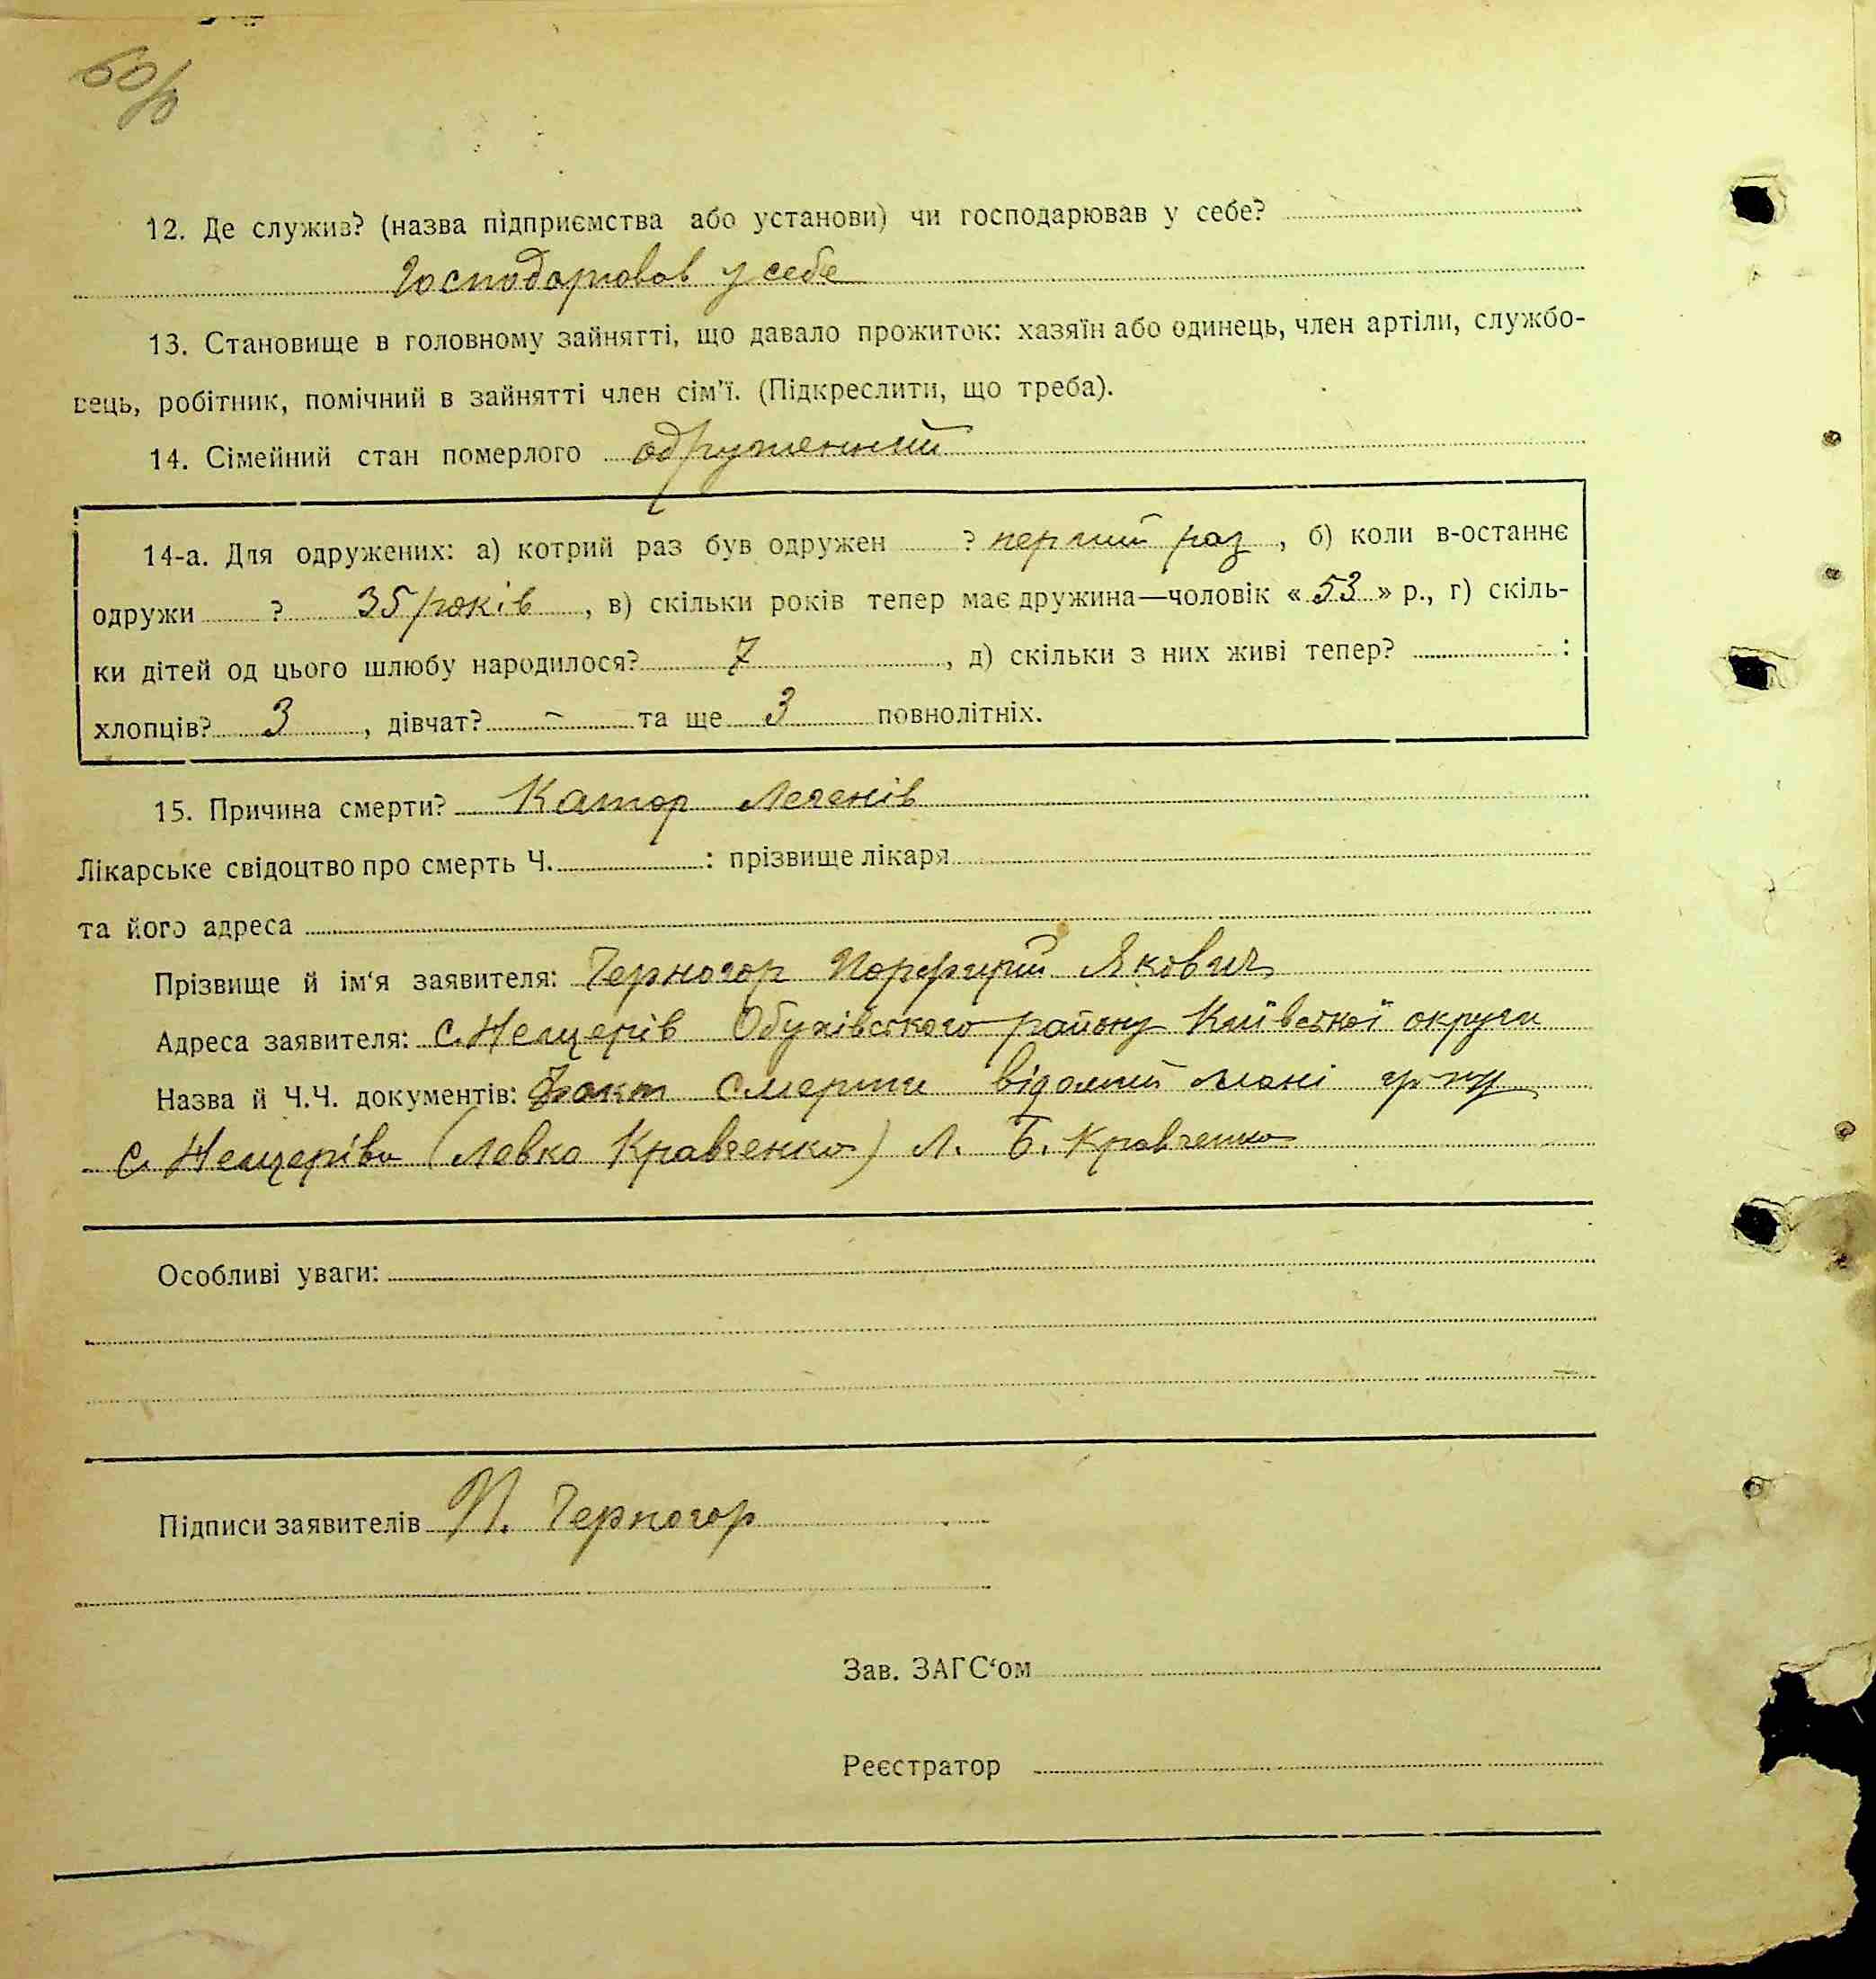 12. Де служив? (назва підприємства або установи) чи господарював у себе?
Господарював у себе
13. Становище в головному зайнятті, що давало прожиток: хазяїн або одинець, член артіли, службо-
вець, робітник, помічний в зайнятті член сім'ї. (Підкреслити, що треба).
14. Сімейний стан померлого одруженний
14-а. Для одружених: а) котрий раз був одружен ? перший раз, б) коли в-останнє
одружи ? 35 років, в) скільки років тепер має дружина—чоловік «53» р., г) скіль-
ки дітей од цього шлюбу народилося? 7, д) скільки з них живі тепер? :
хлопців? 3, дівчат? - та ще 3 повнолітніх.
15. Причина смерти? Катар Легенів
Лікарське свідоцтво про смерть Ч. : прізвище лікаря
та його адреса
Прізвище й ім'я заявителя: Черногор Порфирий Якович
Адреса заявителя: с. Нещерів Обухівского району Київської округи
Назва й Ч.Ч. документів: Факт смерти відомий мені гр-ну
с. Нещерів (Левко Кравченко) Л. Б. Кравченко
Особливі уваги:
Підписи заявителів П. Черногор
Зав. ЗАГС'ом
Реєстратор